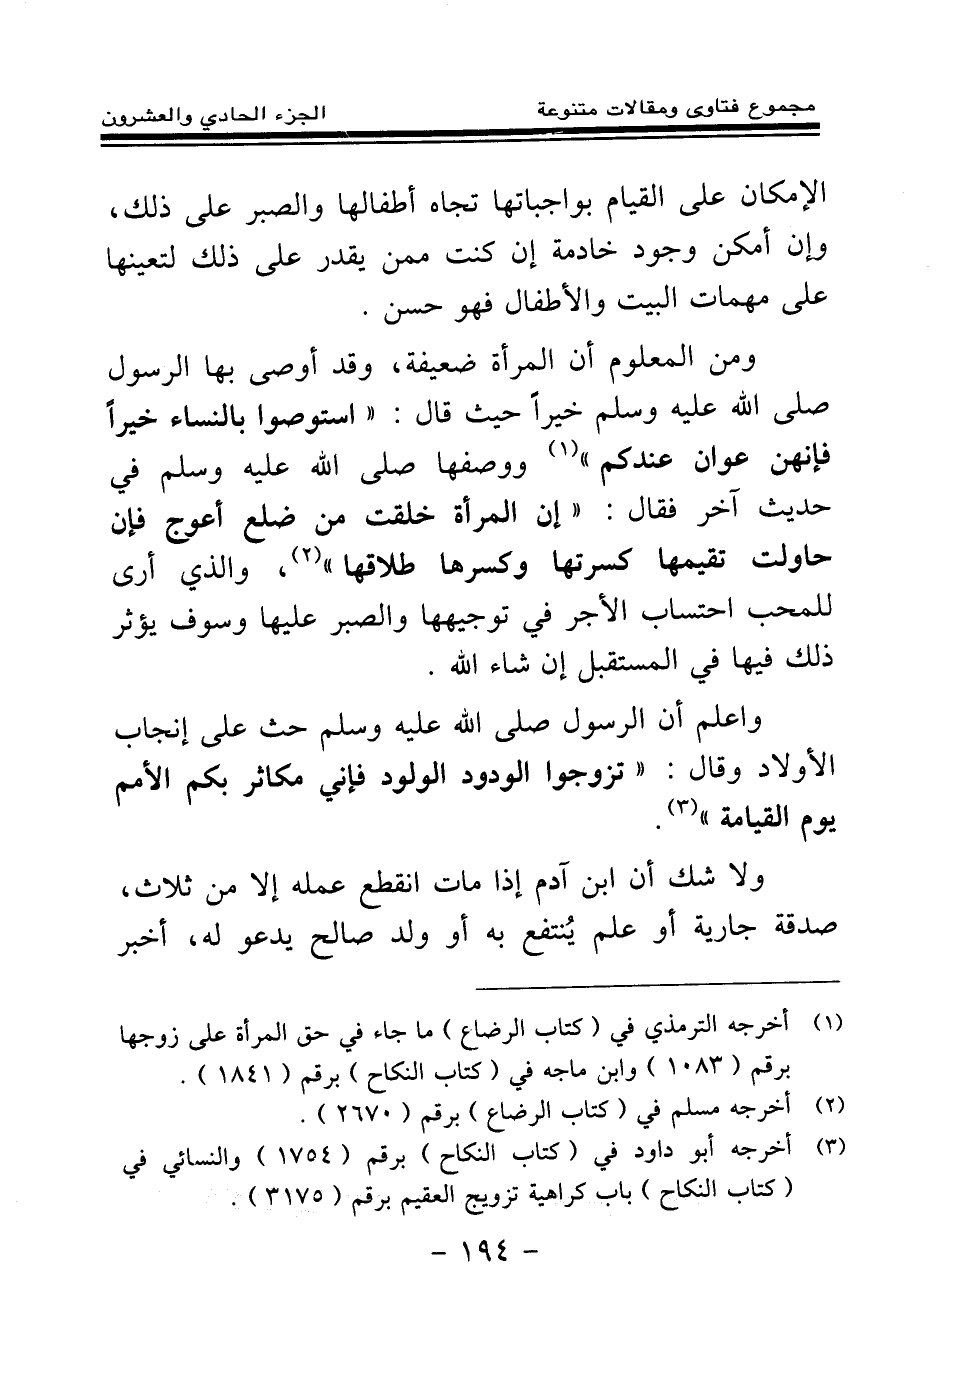 مجموع فتاوى ومقالات متنوعة الجزء الحادي والعشرون
الإمكان على القيام بواجباتها تجاه أطفالها والصبر على ذلك،
وإن أمكن وجود خادمة إن كنت ممن يقدر على ذلك لتعينها
على مهمات البيت والأطفال فهو حسن .
ومن المعلوم أن المرأة ضعيفة، وقد أوصى بها الرسول
صلى الله عليه وسلم خيراً حيث قال : « استوصوا بالنساء خيراً
فإنهن عوان عندكم »(١) ووصفها صلى الله عليه وسلم في
حديث آخر فقال : « إن المرأة خلقت من ضلع أعوج فإن
حاولت تقيمها كسرتها وكسرها طلاقها »(٢)، والذي أرى
للمحب احتساب الأجر في توجيهها والصبر عليها وسوف يؤثر
ذلك فيها في المستقبل إن شاء الله .
واعلم أن الرسول صلى الله عليه وسلم حث على إنجاب
الأولاد وقال : « تزوجوا الودود الولود فإني مكاثر بكم الأمم
يوم القيامة »(٣).
ولا شك أن ابن آدم إذا مات انقطع عمله إلا من ثلاث،
صدقة جارية أو علم يُنتفع به أو ولد صالح يدعو له، أخبر
(١) أخرجه الترمذي في ( كتاب الرضاع ) ما جاء في حق المرأة على زوجها
برقم ( ١٠٨٣ ) وابن ماجه في ( كتاب النكاح ) برقم ( ١٨٤١ ) .
(٢) أخرجه مسلم في ( كتاب الرضاع ) برقم ( ٢٦٧٠ ) .
(٣) أخرجه أبو داود في ( كتاب النكاح ) برقم ( ١٧٥٤ ) والنسائي في
( كتاب النكاح ) باب كراهية تزويج العقيم برقم ( ٣١٧٥ ) .
- ١٩٤ -